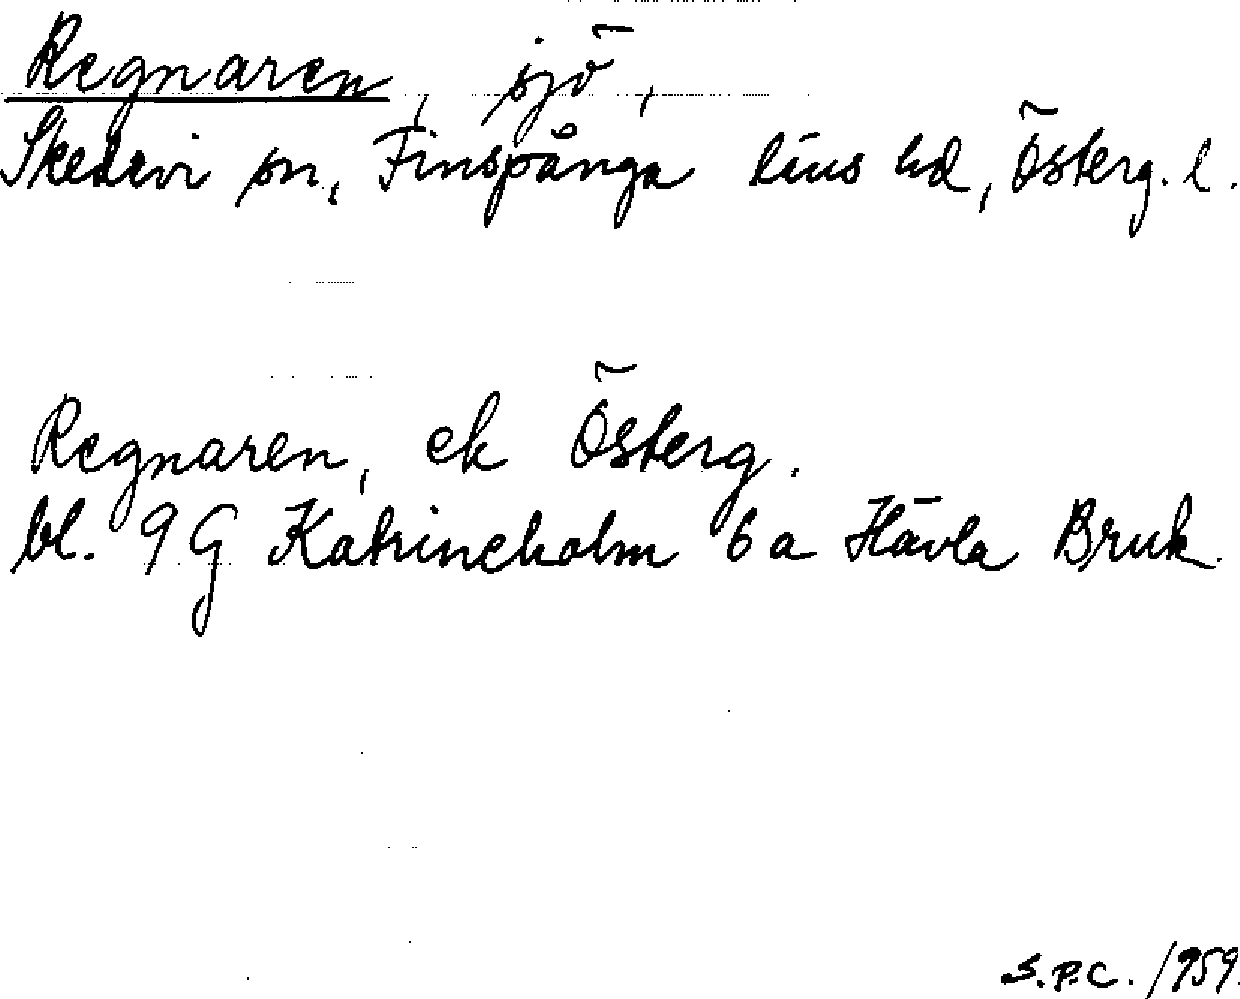 Regnaren, sjö,
Skedevi sn, Finspånga läns hd, Österg. l.
Regnaren, ek Österg.
bl. 9G Katrineholm 6a Hävla Bruk.
S.P.C. 1959.